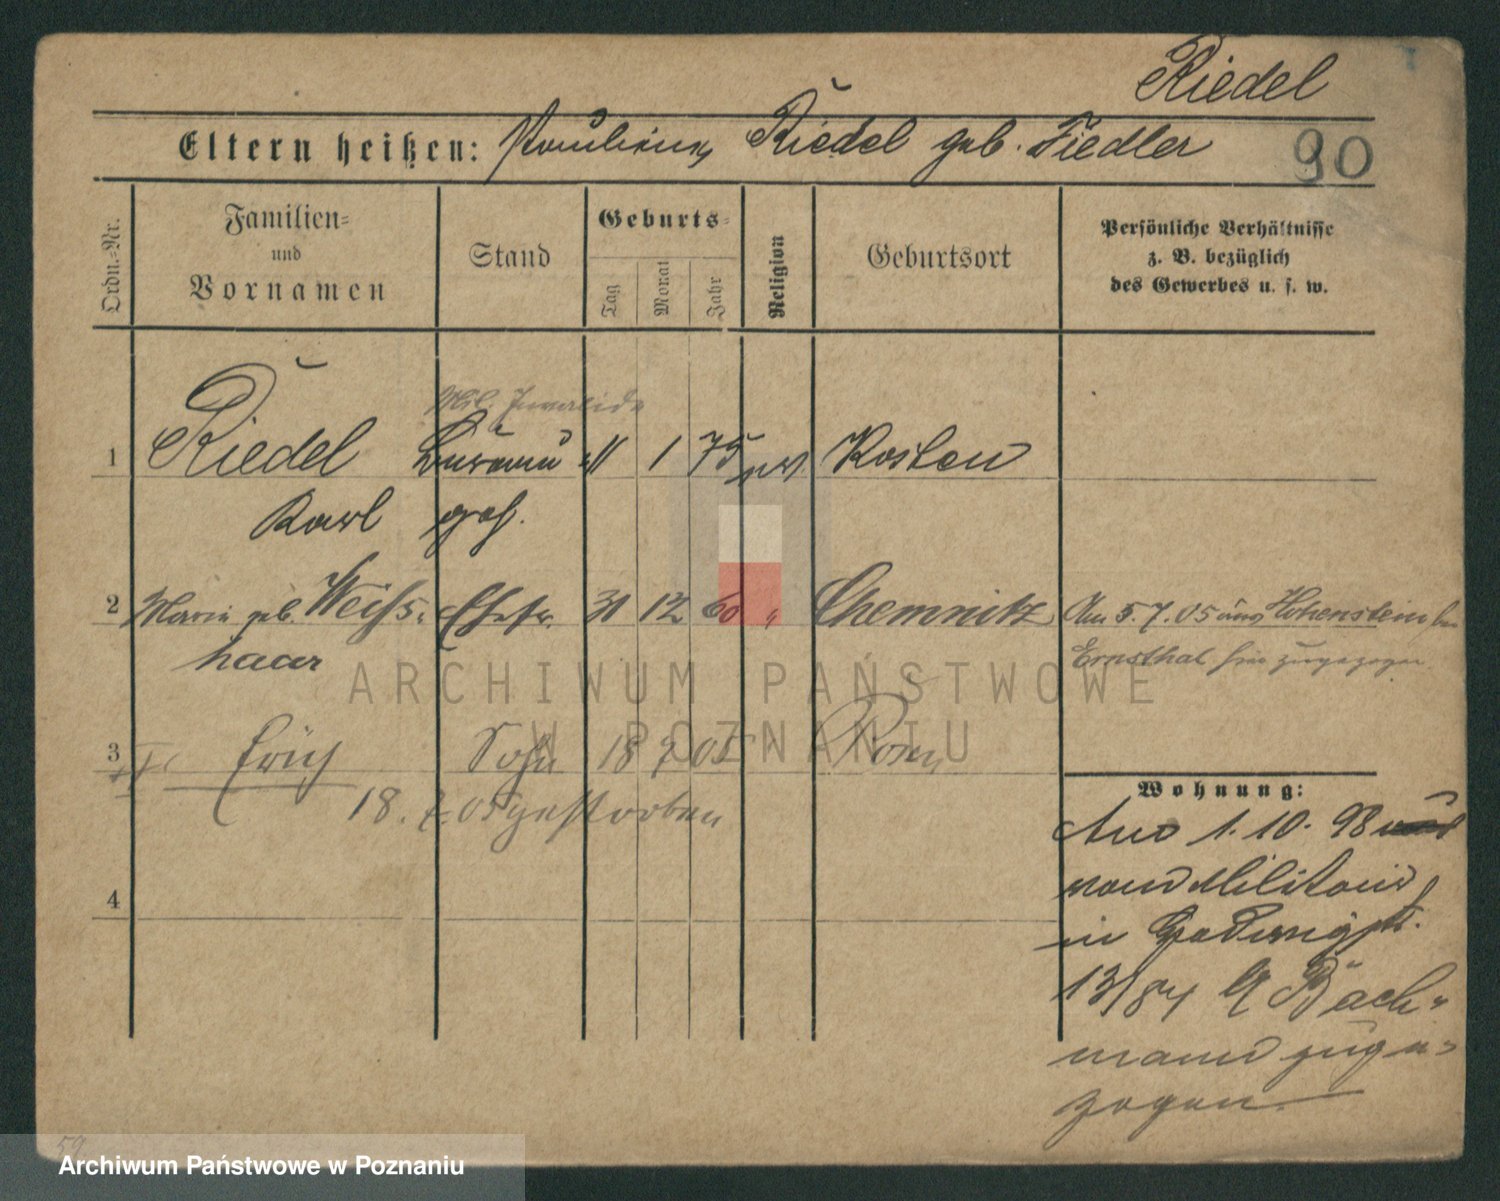 Riedel
Eltern heißen: Pauline Riedel geb. Fiedler
90
Ordn.-Nr.
Familien-
und
Vornamen
Stand
Geburts-
Tag
Monat
Jahr
Religion
Geburtsort
Persönliche Verhältnisse
z. B. bezüglich
des Gewerbes u. s. w.
Mil. Invalide
1 Riedel 11 1 75 ev. Kosten
Karl geh.
2 Marie geb. Weiss- Ehefr. 31 12 60 " Chemnitz Am 5.7.05 aus Hohenstein
haar
Ernsthal hier zugezogen.
3 Erich Sohn 18 7 05 " Posen
18.7.05 gestorben
4
Wohnung:
1.10.98
vom Militair
in
13/84 Bach-
mann zuge-
zogen.
ARCHIWUM PAŃSTWOWE
W POZNANIU
59
Archiwum Państwowe w Poznaniu